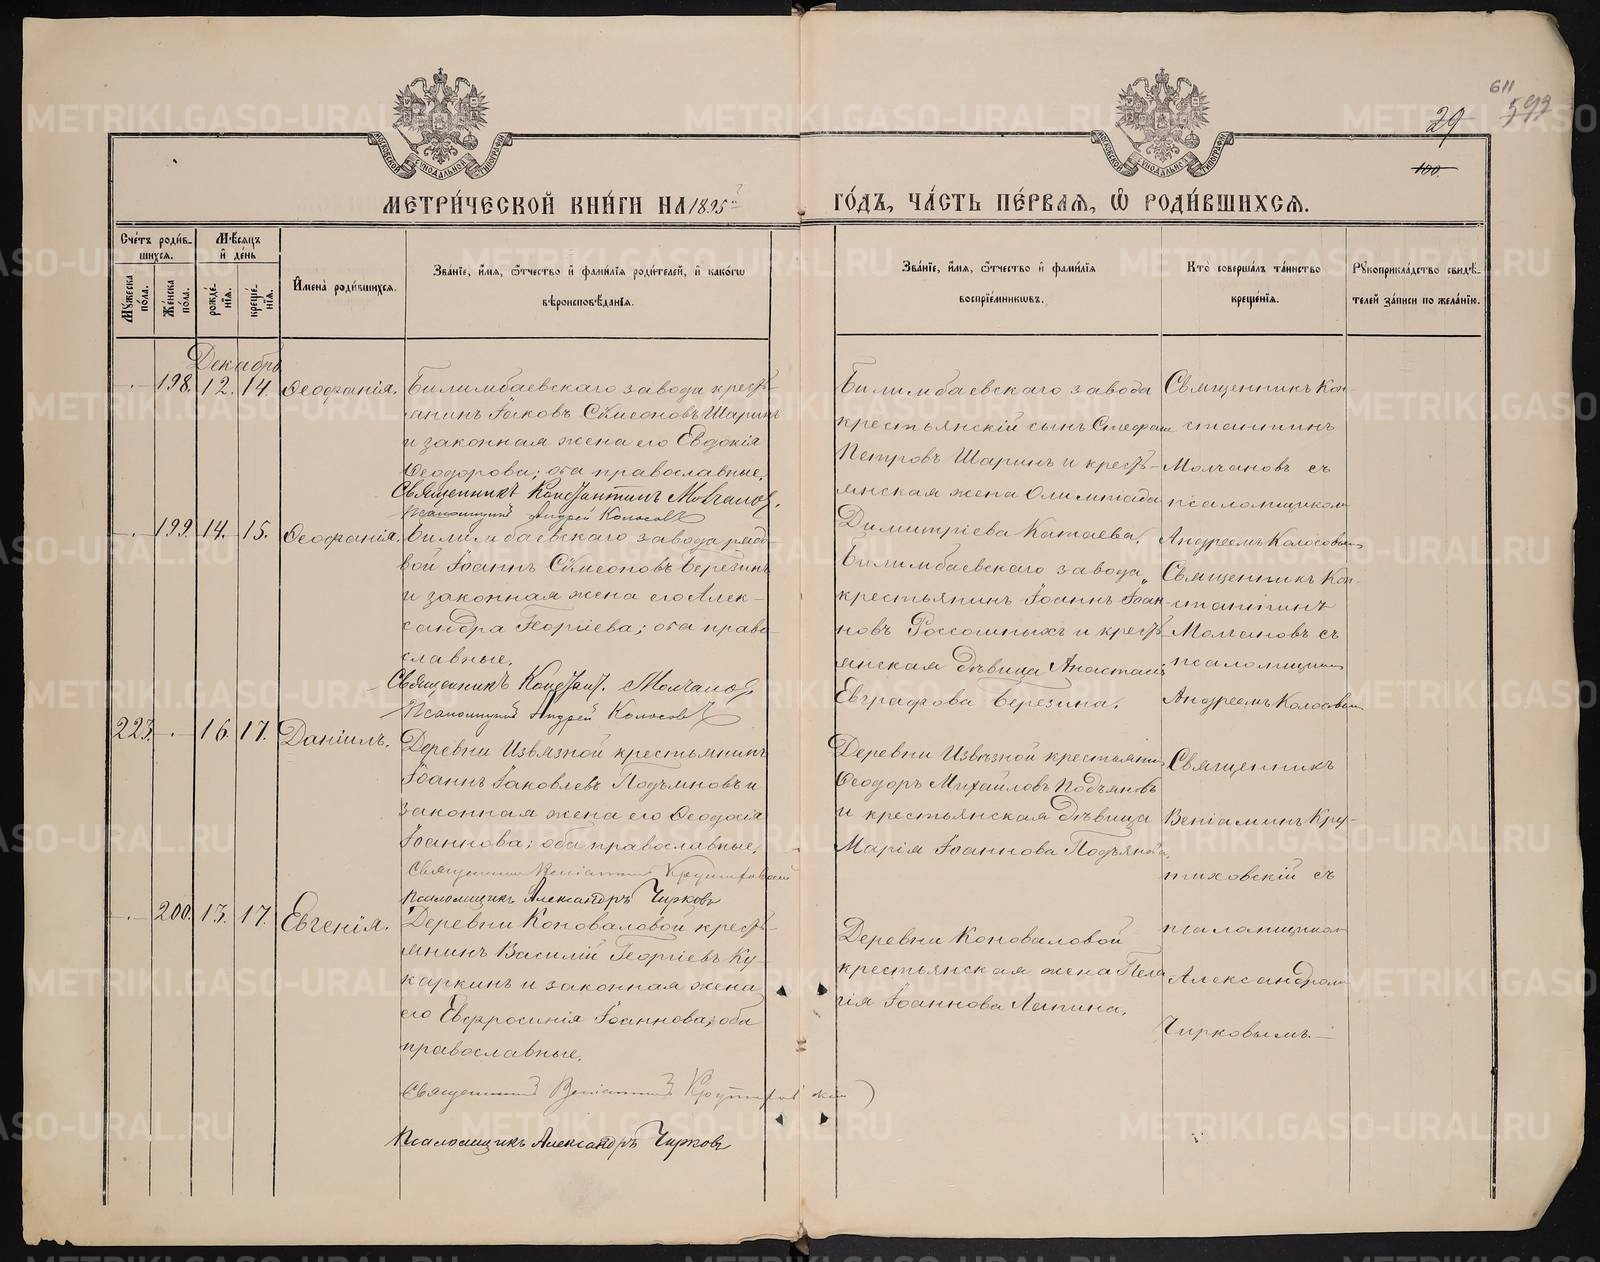 611
29
592
100.
МОСКОВСКОЙ СѴНОДАЛЬНОЙ ТИПОГРАФІИ
МОСКОВСКОЙ СѴНОДАЛЬНОЙ ТИПОГРАФІИ
МЕТРИ́ЧЕСКОЙ КНИ́ГИ НА 1895й ГО́ДЪ, ЧА́СТЬ ПЕ́РВАЯ, Ѡ РОДИ́ВШИХСЯ.
Сче́тъ роди́в-
шихся.
Мꙋжеска по́ла.
Же́нска по́ла.
Мѣ́сяцъ и де́нь
рожде́-нїя.
креще́-нїя.
Имена̀ роди́вшихся.
Зва́нїе, и́мя, ѻ́тчество и фами́лїя роди́телей, и како́гѡ
вѣроисповѣ́данїя.
Зва́нїе, и́мя, ѻ́тчество и фами́лїя
воспрїе́мникѡвъ.
Кто̀ соверша́лъ та́инство
креще́нїя.
Рꙋкоприкла́дство свидѣ́-
телей за́писи по жела́нїю.
Декабрь
-.- 198. 12. 14. Ѳеофанія.
Билимбаевскаго завода кресть-
янинъ Іаковъ Сѵмеоновъ Шаринъ
и законная жена его Евдокія
Ѳеодорова; оба православные.
Священникъ Константинъ Молчановъ.
Псаломщикъ Андрей Колосовъ
Билимбаевскаго завода
крестьянскій сынъ Стефанъ
Петровъ Шаринъ и кресть-
янская жена Олимпіада
Димитріева Катаева.
Священникъ Кон-
стантинъ
Молчановъ съ
псаломщикомъ
Андреемъ Колосовымъ
-.- 199. 14. 15. Ѳеофанія.
Билимбаевскаго завода рядо-
вой Іоаннъ Сѵмеоновъ Березинъ
и законная жена его Алек-
сандра Георгіева; оба право-
славные.
Священникъ Констант. Молчановъ
Псаломщикъ Андрей Колосовъ
Билимбаевскаго завода
крестьянинъ Іоаннъ Іоан-
новъ Россошныхъ и кресть-
янская дѣвица Анастасія
Евграфова Березина.
Священникъ Кон-
стантинъ
Молчановъ съ
псаломщикомъ
Андреемъ Колосовымъ
223. -.- 16. 17. Даніилъ.
Деревни Извѣзной крестьянинъ
Іоаннъ Іаковлевъ Подъяновъ и
законная жена его Ѳеодосія
Іоаннова; оба православные.
Священникъ Веніаминъ Крутиховскій
Псаломщикъ Александръ Чирковъ
Деревни Извѣзной крестьянинъ
Ѳеодоръ Михайловъ Подъяновъ
и крестьянская дѣвица
Марія Іоаннова Подъянова.
Священникъ
Веніаминъ Кру-
тиховскій съ
псаломщикомъ
Александромъ
Чирковымъ.
-.- 200. 13. 17. Евгенія.
Деревни Коноваловой кресть-
янинъ Василій Георгіевъ Ку-
каркинъ и законная жена
его Евфросинія Іоаннова; оба
православные.
Священникъ Веніаминъ Крутиховскій
Псаломщикъ Александръ Чирковъ
Деревни Коноваловой
крестьянская жена Пела-
гія Іоаннова Лапина.
METRIKI.GASO-URAL.RU